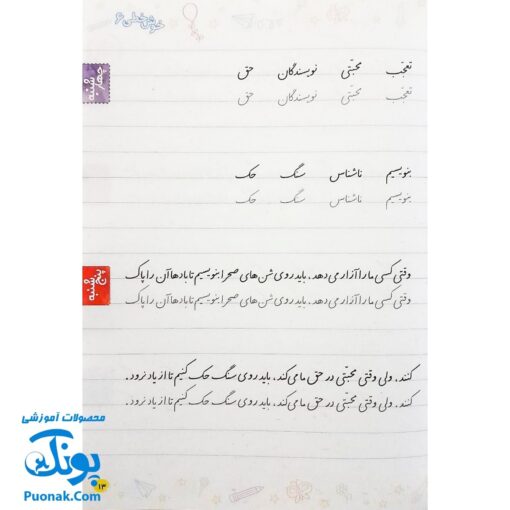 خوش خطی ۶
چهارشنبه
تعجّب محبّتی نویسندگان حق
تعجّب محبّتی نویسندگان حق
بنویسیم ناشناس سنگ حک
بنویسیم ناشناس سنگ حک
پنج شنبه
وقتی کسی ما را آزار می دهد، باید روی شن های صحرا بنویسیم تا بادها آن را پاک
وقتی کسی ما را آزار می دهد، باید روی شن های صحرا بنویسیم تا بادها آن را پاک
کنند، ولی وقتی محبّتی در حق ما می کند، باید روی سنگ حک کنیم تا از یاد نرود.
کنند، ولی وقتی محبّتی در حق ما می کند، باید روی سنگ حک کنیم تا از یاد نرود.
محصولات آموزشی
پونک
Puonak.Com
۱۳